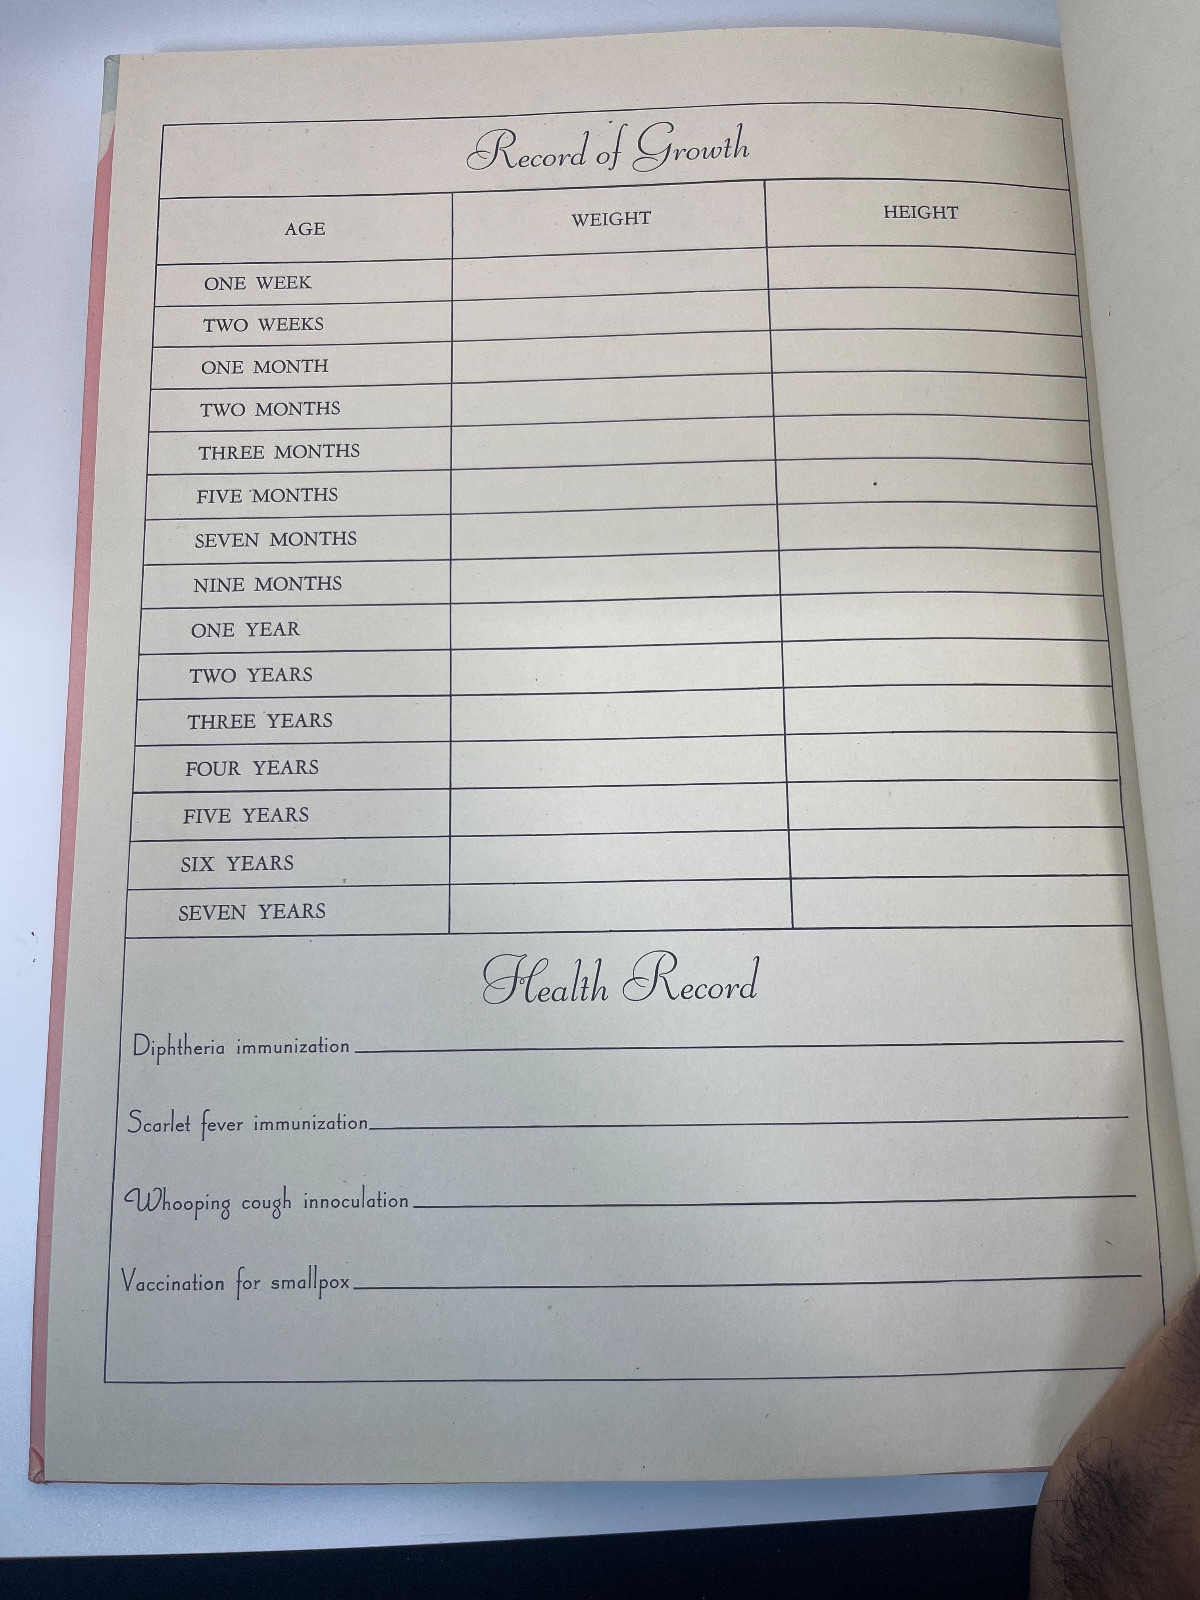 Record of Growth
AGE WEIGHT HEIGHT
ONE WEEK
TWO WEEKS
ONE MONTH
TWO MONTHS
THREE MONTHS
FIVE MONTHS
SEVEN MONTHS
NINE MONTHS
ONE YEAR
TWO YEARS
THREE YEARS
FOUR YEARS
FIVE YEARS
SIX YEARS
SEVEN YEARS
Health Record
Diphtheria immunization
Scarlet fever immunization
Whooping cough innoculation
Vaccination for smallpox